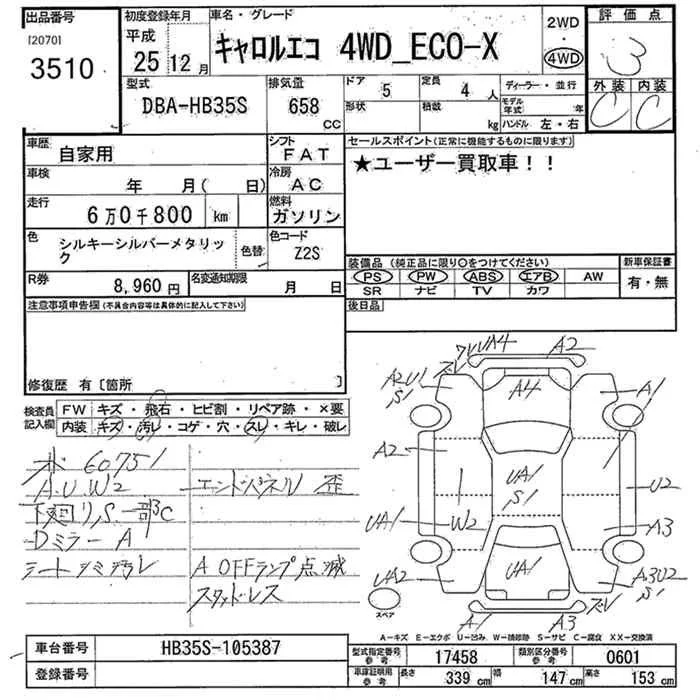 出品番号
[2070]
3510
初度登録年月
平成
25年12月
車名・グレード
キャロルエコ 4WD_ECO-X
2WD
・
4WD
評価点
3
外装 内装
C C
型式
DBA-HB35S
排気量
658
CC
ドア 5
形状
定員 4 人
積載 kg
ディーラー・並行
モデル年式 年
ハンドル 左・右
車歴
自家用
シフト
FAT
車検
年 月( 日)
冷房
AC
走行
6万0千800 km
燃料
ガソリン
色
シルキーシルバーメタリッ
ク
色替
色コード
Z2S
R券
8,960円
名変通知期限
月 日
セールスポイント(正常に機能するものに限ります)
★ユーザー買取車!!
装備品 (純正品に限り○をつけてください)
PS PW ABS エアB AW
SR ナビ TV カワ
新車保証書
有・無
後日品
注意事項申告欄(不具合内容等は具体的に記入して下さい)
修復歴 有〔箇所 〕
検査員
記入欄
FW キズ・飛石・ヒビ割・リペア跡・×要
内装 キズ・汚レ・コゲ・穴・スレ・キレ・破レ
60751
A.U.W2
エンドパネル 歪
下廻リ,S.一部C
Dミラー A
シートシミ汚レ
A OFFランプ点滅
スタッドレス
A4
A2
A2U1
S1
A4
A1
A2
UA1
S1
U2
UA1
W2
A3
UA2
UA1
A3U2
S1
ズレ
A1
A3
スペア
A-キズ E-エクボ U-凹み W-補修跡 S-サビ C-腐食 XX-交換済
車台番号
HB35S-105387
登録番号
型式指定番号
参考
17458
類別区分番号
参考
0601
車庫証明用
参考
長さ 339 cm
幅 147 cm
高さ 153 cm